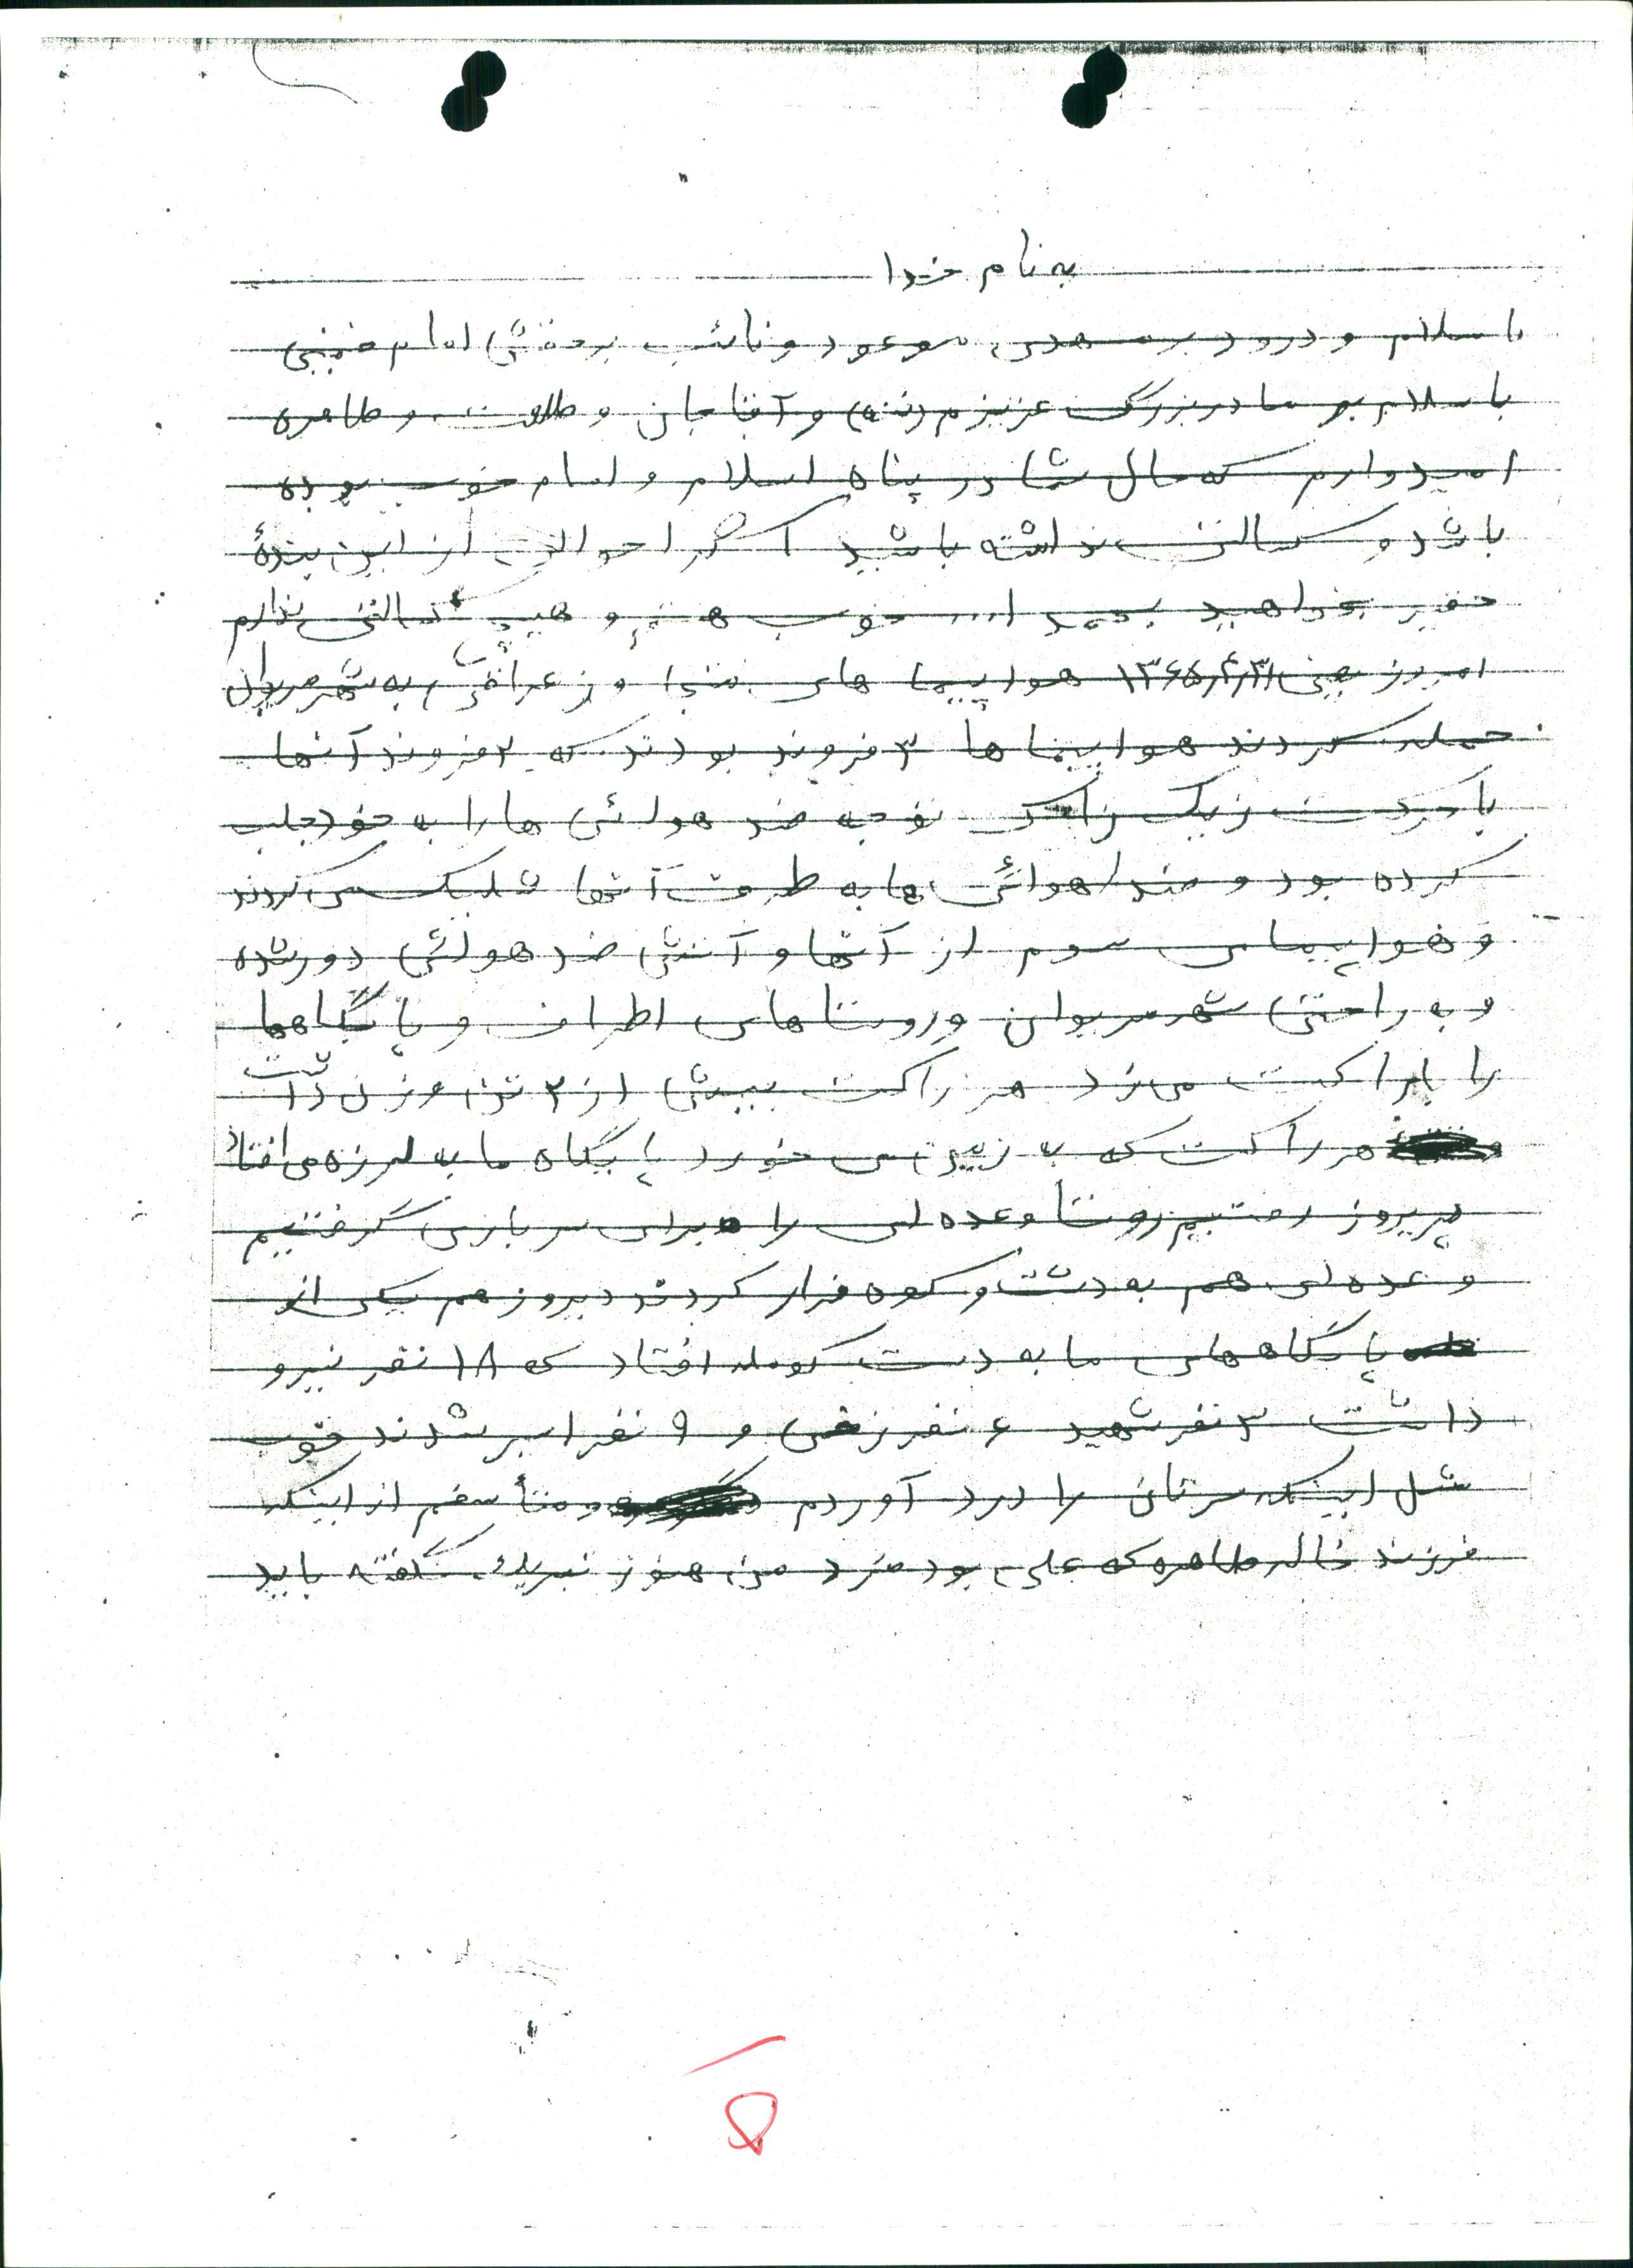 به نام خدا
با سلام و درود بر مهدی موعود و نائب برحقش امام خمینی
با سلام بر مادربزرگ عزیزم (ننه) و آقاجان و طلعت و طاهره
امیدوارم که حال شما در پناه اسلام و امام خوب بوده
باشد و کسالتی نداشته باشید اگر احوالی از این بندهٔ
حقیر بخواهید بحمدا... خوب هستم و هیچ کسالتی ندارم
امروز یعنی ۱۳۶۵/۴/۳۱ هواپیما های عراقی به شهر مریوان
حمله کردند هواپیما ها ۳ فروند بودند که ۲ فروند آنها
با حرکت زیک زاک توجه ضد هوائی ها را به خود جلب
کرده بود و ضد هوائی ها به طرف آنها شلیک می کردند
و هواپیمای سوم از آنها و آتش ضد هوائی دور شده
و به راحتی شهر مریوان و روستاهای اطراف و پایگاهها
را با راکت می زد هر راکت بیش از ۲ تن وزن داشت
هر راکت که به زمین می خورد پایگاه ما به لرزه می افتاد
پریروز رفتیم روستا و عده ای را برای سربازی گرفتیم
و عده ای هم به دشت و کوه فرار کردند دیروز هم یکی از
پایگاههای ما به دست کومله افتاد که ۱۸ نفر نیرو
داشت ۳ نفر شهید ۶ نفر زخمی و ۹ نفر اسیر شدند خوب
مثل اینکه سرتان را درد آوردم و متأسفم از اینکه
فرزند خاله طاهره که علی بود مرد من هنوز تبریک نگفته باید
۵